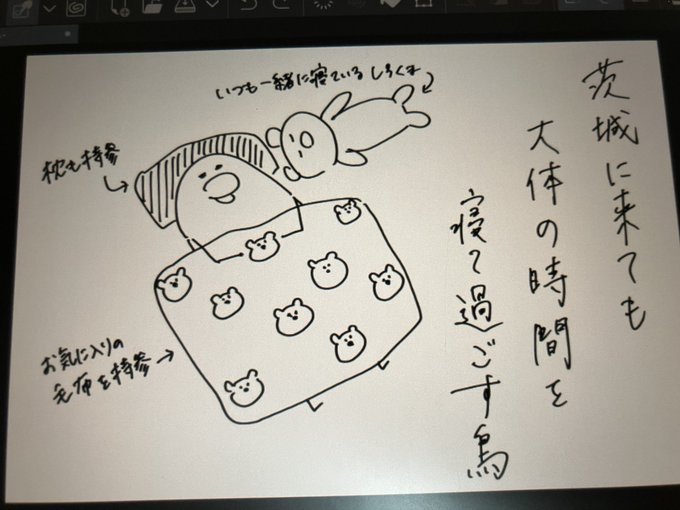 茨城に来ても
大体の時間を
寝て過ごす鳥
いつも一緒に寝ているしろくま
枕も持参
お気に入りの
毛布を持参